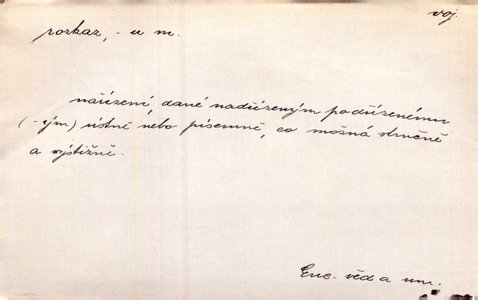 voj.
rozkaz, -u m.
nařízení, dané nadřízeným podřízenému
(-ým) ústně nebo písemně, co možná stručně
a výstižně.
Enc. věd a um.